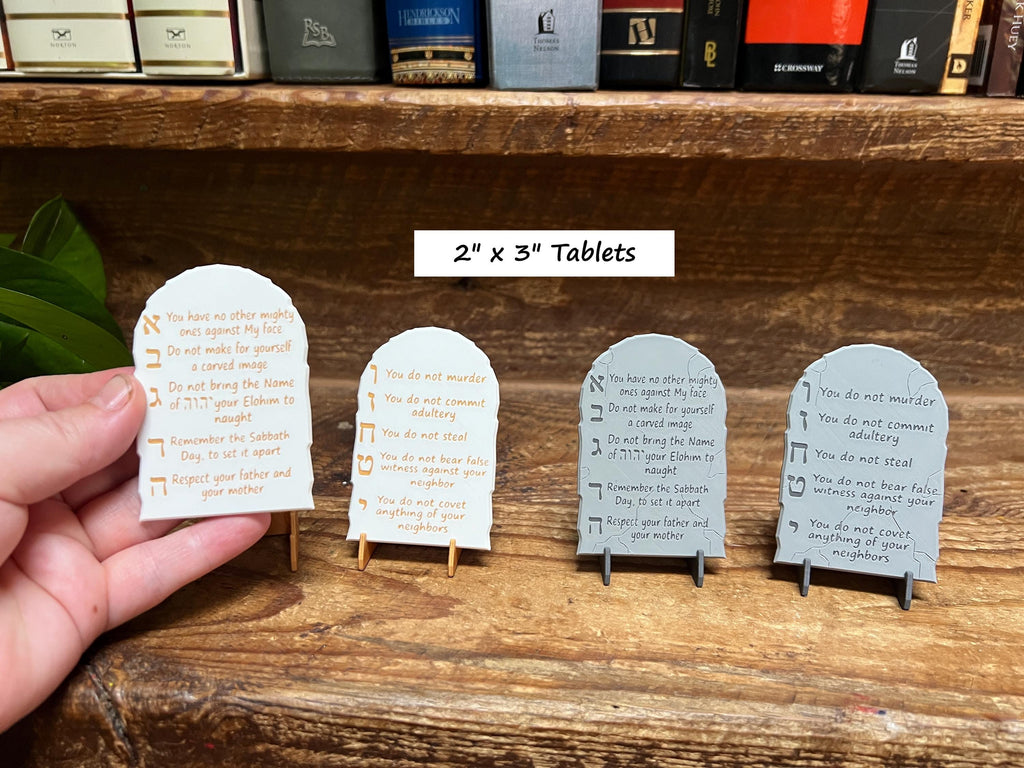 NORTON
NORTON
RSB
HENDRICKSON
BIBLES
THOMAS
NELSON
H
JOHN
B
CROSSWAY
THOMAS
NELSON
HUEY
2" x 3" Tablets
א You have no other mighty
ones against My face
ב Do not make for yourself
a carved image
ג Do not bring the Name
of יהוה your Elohim to
naught
ד Remember the Sabbath
Day, to set it apart
ה Respect your father and
your mother
ו You do not murder
ז You do not commit
adultery
ח You do not steal
ט You do not bear false
witness against your
neighbor
י You do not covet
anything of your
neighbors
א You have no other mighty
ones against My face
ב Do not make for yourself
a carved image
ג Do not bring the Name
of יהוה your Elohim to
naught
ד Remember the Sabbath
Day, to set it apart
ה Respect your father and
your mother
ו You do not murder
ז You do not commit
adultery
ח You do not steal
ט You do not bear false
witness against your
neighbor
י You do not covet
anything of your
neighbors